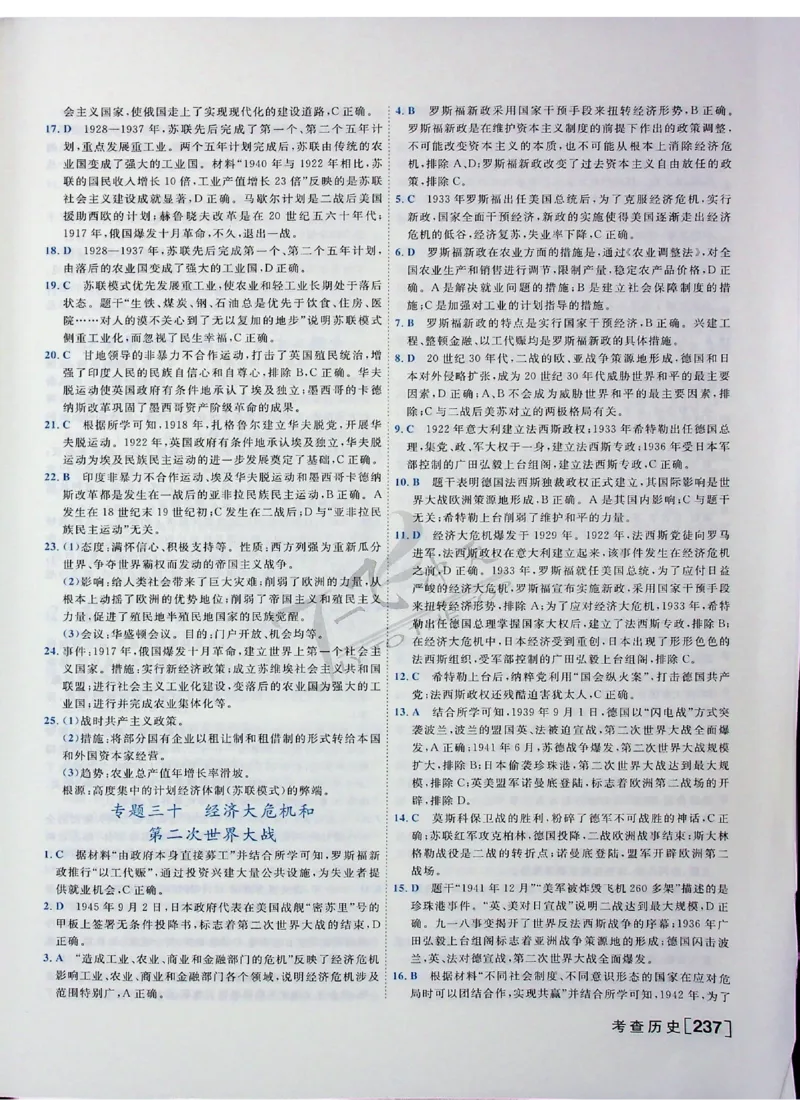 会主义国家,使俄国走上了实现现代化的建设道路,C正确。
17. D 1928—1937年,苏联先后完成了第一个、第二个五年计
划,重点发展重工业。两个五年计划完成后,苏联由传统的农
业国变成了强大的工业国。材料“1940年与1922年相比,苏
联的国民收入增长10倍,工业产值增长23倍”反映的是苏联
社会主义建设成就显著,D正确。马歇尔计划是二战后美国
援助西欧的计划;赫鲁晓夫改革是在20世纪五六十年代;
1917年,俄国爆发十月革命,不久,退出一战。
18. D 1928—1937年,苏联先后完成第一个、第二个五年计划,
由落后的农业国变成了强大的工业国,D正确。
19. C 苏联模式优先发展重工业,使农业和轻工业长期处于落后
状态。题干“生铁、煤炭、钢、石油总是优先于饮食、住房、医
院……对人的漠不关心到了无以复加的地步”说明苏联模式
侧重工业化,而忽视了民生幸福,C正确。
20. C 甘地领导的非暴力不合作运动,打击了英国殖民统治,增
强了印度人民的民族自信心和自尊心,排除B,C正确。华夫
脱运动使英国政府有条件地承认了埃及独立;墨西哥的卡德
纳斯改革巩固了墨西哥资产阶级革命的成果。
21. C 根据所学可知,1918年,扎格鲁尔建立华夫脱党,开展华
夫脱运动。1922年,英国政府有条件地承认埃及独立,华夫脱
运动为埃及民族民主运动的进一步发展奠定了基础,C正确。
22. B 印度非暴力不合作运动、埃及华夫脱运动和墨西哥卡德纳
斯改革都是发生在一战后的亚非拉民族民主运动,B正确。A
发生在18世纪末19世纪初;C发生在二战后;D与“亚非拉民
族民主运动”无关。
23. (1)态度:满怀信心、积极支持等。性质:西方列强为重新瓜分
世界、争夺世界霸权而发动的帝国主义战争。
(2)影响:给人类社会带来了巨大灾难;削弱了欧洲的力量,从
根本上动摇了欧洲的优势地位;削弱了帝国主义和殖民主义
力量,促进了殖民地半殖民地国家的民族觉醒。
(3)会议:华盛顿会议。目的:门户开放、机会均等。
24. 事件:1917年,俄国爆发十月革命,建立世界上第一个社会主
义国家。措施:实行新经济政策;成立苏维埃社会主义共和国
联盟;进行社会主义工业化建设,变落后的农业国为强大的工
业国;进行并完成农业集体化等。
25. (1)战时共产主义政策。
(2)措施:将部分国有企业以租让制和租借制的形式转给本国
和外国资本家经营。
(3)趋势:农业总产值年增长率滑坡。
根源:高度集中的计划经济体制(苏联模式)的弊端。
专题三十 经济大危机和
第二次世界大战
1. C 据材料“由政府本身直接募工”并结合所学可知,罗斯福新
政推行“以工代赈”,通过投资兴建大量公共设施,为失业者提
供就业机会,C正确。
2. D 1945年9月2日,日本政府代表在美国战舰“密苏里”号的
甲板上签署无条件投降书,标志着第二次世界大战的结束,D
正确。
3. A “造成工业、农业、商业和金融部门的危机”反映了经济危机
影响工业、农业、商业和金融部门各个领域,说明经济危机涉及
范围特别广,A正确。
4. B 罗斯福新政采用国家干预手段来扭转经济形势,B正确。
罗斯福新政是在维护资本主义制度的前提下作出的政策调整,
不可能改变资本主义的本质,也不可能从根本上消除经济危
机,排除A、D;罗斯福新政改变了过去资本主义自由放任的政
策,排除C。
5. C 1933年罗斯福出任美国总统后,为了克服经济危机,实行
新政,国家全面干预经济,新政的实施使得美国逐渐走出经济
危机的低谷,经济复苏,失业率下降,C正确。
6. D 罗斯福新政在农业方面的措施是,通过《农业调整法》,对全
国农业生产和销售进行调节,限制产量,稳定农产品价格,D正
确。A是解决就业问题的措施;B是建立社会保障制度的措
施;C是加强对工业的计划指导的措施。
7. B 罗斯福新政的特点是实行国家干预经济,B正确。兴建工
程、整顿金融、以工代赈均是罗斯福新政的具体措施。
8. D 20世纪30年代,二战的欧、亚战争策源地形成,德国和日
本对外侵略扩张,成为20世纪30年代威胁世界和平的最主要
因素,D正确;A、B不会成为威胁世界和平的最主要因素,排
除;C与二战后美苏对立的两极格局有关。
9. C 1922年意大利建立法西斯政权;1933年希特勒出任德国总
理,集党、政、军大权于一身,建立法西斯专政;1936年受日本军
部控制的广田弘毅上台组阁,建立法西斯专政,C正确。
10. B 题干表明德国法西斯独裁政权正式建立,其国际影响是世
界大战欧洲策源地形成,B正确。A是其国内影响;C与题干
无关;希特勒上台削弱了维护和平的力量。
11. D 经济大危机爆发于1929年。1922年,法西斯党徒向罗马
进军,法西斯政权在意大利建立起来,该事件发生在经济危机
之前,D正确。1933年,罗斯福就任美国总统,为了应付日益
严峻的经济大危机,罗斯福宣布实施新政,采用国家干预手段
来扭转经济形势,排除A;为了应对经济大危机,1933年,希特
勒出任德国总理掌握国家大权后,建立了法西斯专政,排除B;
在经济大危机中,日本经济受到重创,日本出现了形形色色的
法西斯组织,受军部控制的广田弘毅上台组阁,排除C。
12. C 希特勒上台后,纳粹党利用“国会纵火案”,打击德国共产
党;法西斯政权还残酷迫害犹太人,C正确。
13. A 结合所学可知,1939年9月1日,德国以“闪电战”方式突
袭波兰,波兰的盟国英、法被迫宣战,第二次世界大战全面爆
发,A正确;1941年6月,苏德战争爆发,第二次世界大战规模
扩大,排除B;日本偷袭珍珠港,第二次世界大战达到最大规
模,排除C;英美盟军诺曼底登陆,标志着欧洲第二战场的开
辟,排除D。
14. C 莫斯科保卫战的胜利,粉碎了德军不可战胜的神话,C正
确;苏联红军攻克柏林,德国投降,二战欧洲战事结束;斯大林
格勒战役是二战的转折点;诺曼底登陆,盟军开辟欧洲第二
战场。
15. D 题干“1941年12月”“美军被炸毁飞机260多架”描述的是
珍珠港事件。“英、美对日宣战”说明二战达到最大规模,D正
确。九一八事变揭开了世界反法西斯战争的序幕;1936年广
田弘毅上台组阁标志着亚洲战争策源地的形成;德国闪击波
兰,英、法对德宣战,第二次世界大战全面爆发。
16. B 根据材料“不同社会制度、不同意识形态的国家在应对危
局时可以团结合作,实现共赢”并结合所学可知,1942年,为了
考查历史[237]